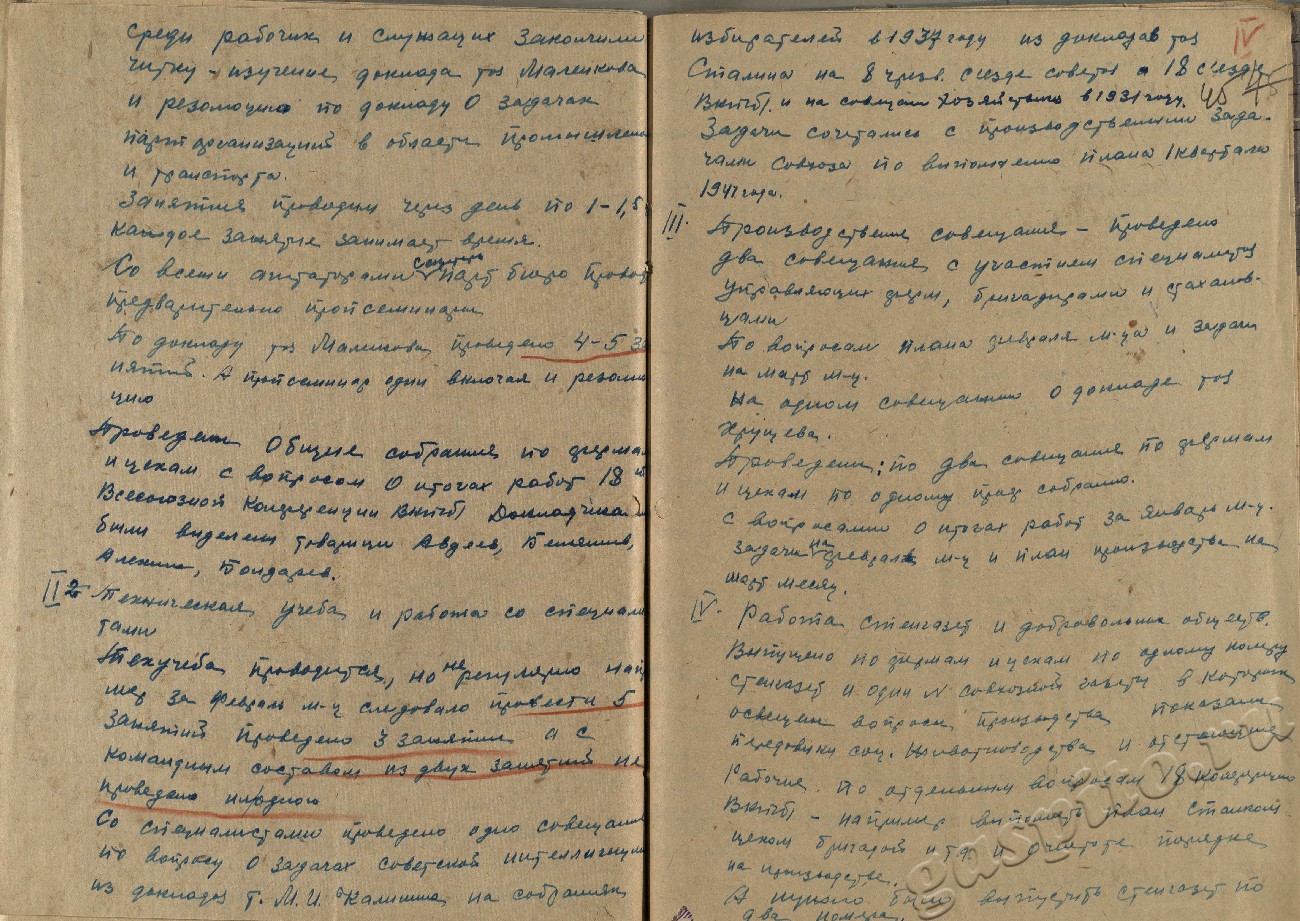 среди рабочих и служащих закончили
читку - изучение доклада тов Маленкова
и резолюцию по докладу О задачах
парторганизаций в области промышлен
и транспорта.
Занятия проводим через день по 1-1,5
каждое занятие занимает время.
Со всеми агитаторами парт бюро провод
предварительно пропсеминары
По докладу тов Маленкова проведено 4-5 за
нятий. А пропсеминар один включая и резолю
цию
Проведены Общие собрания по фермам
и цехам с вопросом О итогах работ 18 ой
Всесоюзной Конференции ВКП(б) Докладчика
были выделены товарищи Авдеев,
Алехин, Бондарев.
II Техническая учеба и работа со специалис
тами
Техучеба проводится, но не регулярно напри
мер за февраль м-ц следовало провести 5
занятий проведено 3 занятия а с
командным составом из двух занятий не
проведено ни одного
Со специалистами проведено одно совещание
по вопросу О задачах советской интеллигенции
из докладов т. М. И. Калинина на собраниях
избирателей в 1937 году из докладов тов
IV
Сталина на 8 чрезв. съезде советов и 18 съезде
ВКП(б) и на совещан хозяйствен в 1931 году.
45
Задачи сочетались с производственными зада-
чами совхоза по выполнению плана 1 квартала
1941 года.
III. Производствен совещания - проведено
два совещания с участием специалистов
управляющих ферм, бригадирами и стаханов-
цами
По вопросам плана февраля м-ца и задачи
на март м-ц.
На одном совещании О докладе тов
Хрущева.
Проведены: по два совещания по фермам
и цехам по одному проф собранию.
с вопросами О итогах работ за январь м-ц.
задачи на февраль м-ц и план производства на
март месяц.
IV. Работа стенгазет и добровольных обществ.
Выпущено по фермам и цехам по одному номеру
стенгазет и один N совхозной газеты в которых
освещен вопросы производства показаны
передовики соц. животноводства и отстающие
рабочие. По отдельным вопросам 18 конференции
ВКП(б) - например выполнить план
цехом бригадой и т.д. и о чистоте порядке
на производстве.
А нужно было выпустить стенгазет по
два номера.
gaspiro.ru